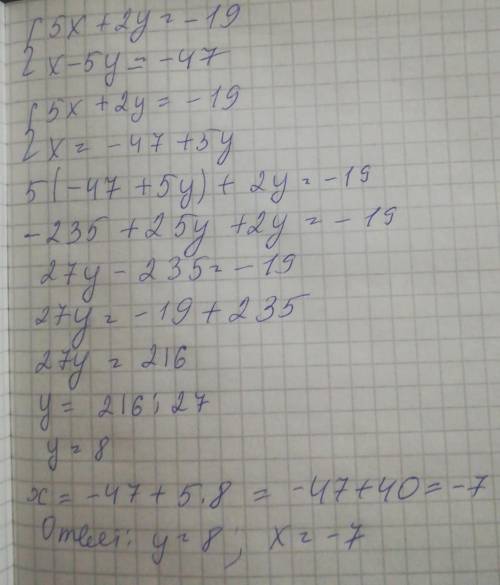 { 5x + 2y = -19
x - 5y = -47
{ 5x + 2y = -19
x = -47 + 5y
5(-47 + 5y) + 2y = -19
-235 + 25y + 2y = -19
27y - 235 = -19
27y = -19 + 235
27y = 216
y = 216 : 27
y = 8
x = -47 + 5.8 = -47+40 = -7
Ответ: y = 8 ; x = -7